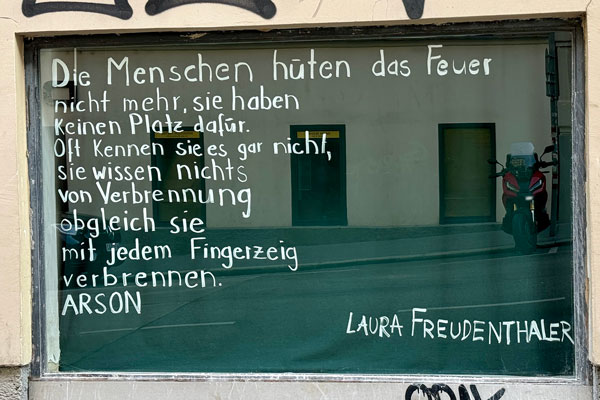 Die Menschen hüten das Feuer
nicht mehr, sie haben
keinen Platz dafür.
Oft kennen sie es gar nicht,
sie wissen nichts
von Verbrennung
obgleich sie
mit jedem Fingerzeig
verbrennen.
ARSON
LAURA FREUDENTHALER